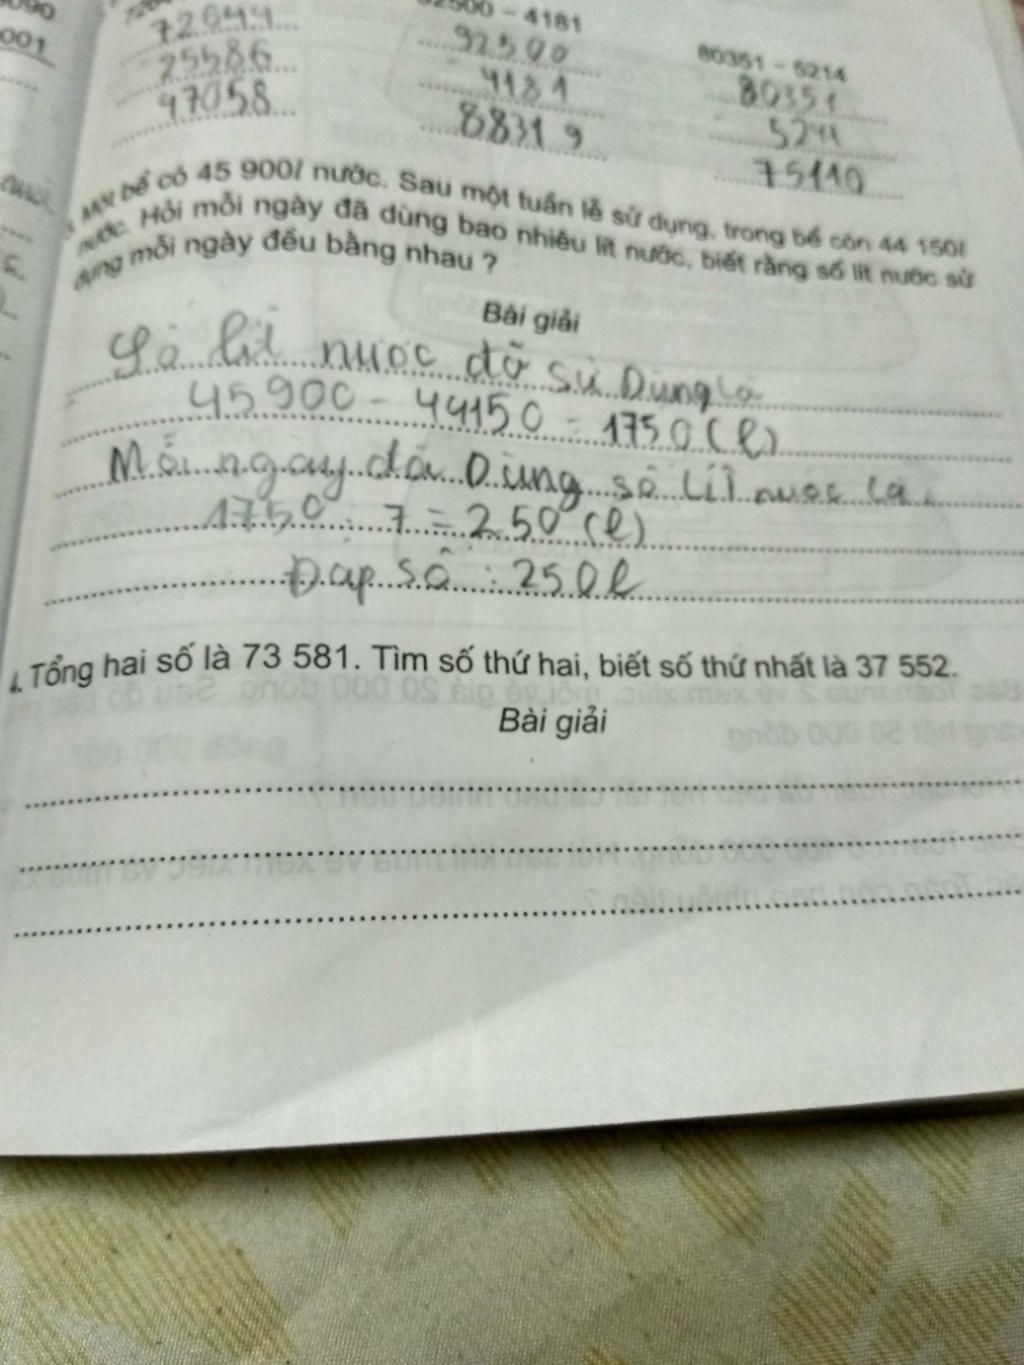 001
72644
25586
47058
- 4181
92500
4181
88319
80351 - 5214
80351
5241
75110
Một bể có 45 900l nước. Sau một tuần lễ sử dụng, trong bể còn 44 150l
nước. Hỏi mỗi ngày đã dùng bao nhiêu lít nước, biết rằng số lít nước sử
dụng mỗi ngày đều bằng nhau ?
Bài giải
Số lít nước đã sử Dùng là
45900 - 44150 = 1750 (l)
Mỗi ngày đã Dùng số lít nước là :
1750 : 7 = 250 (l)
Đáp số : 250l
Tổng hai số là 73 581. Tìm số thứ hai, biết số thứ nhất là 37 552.
Bài giải